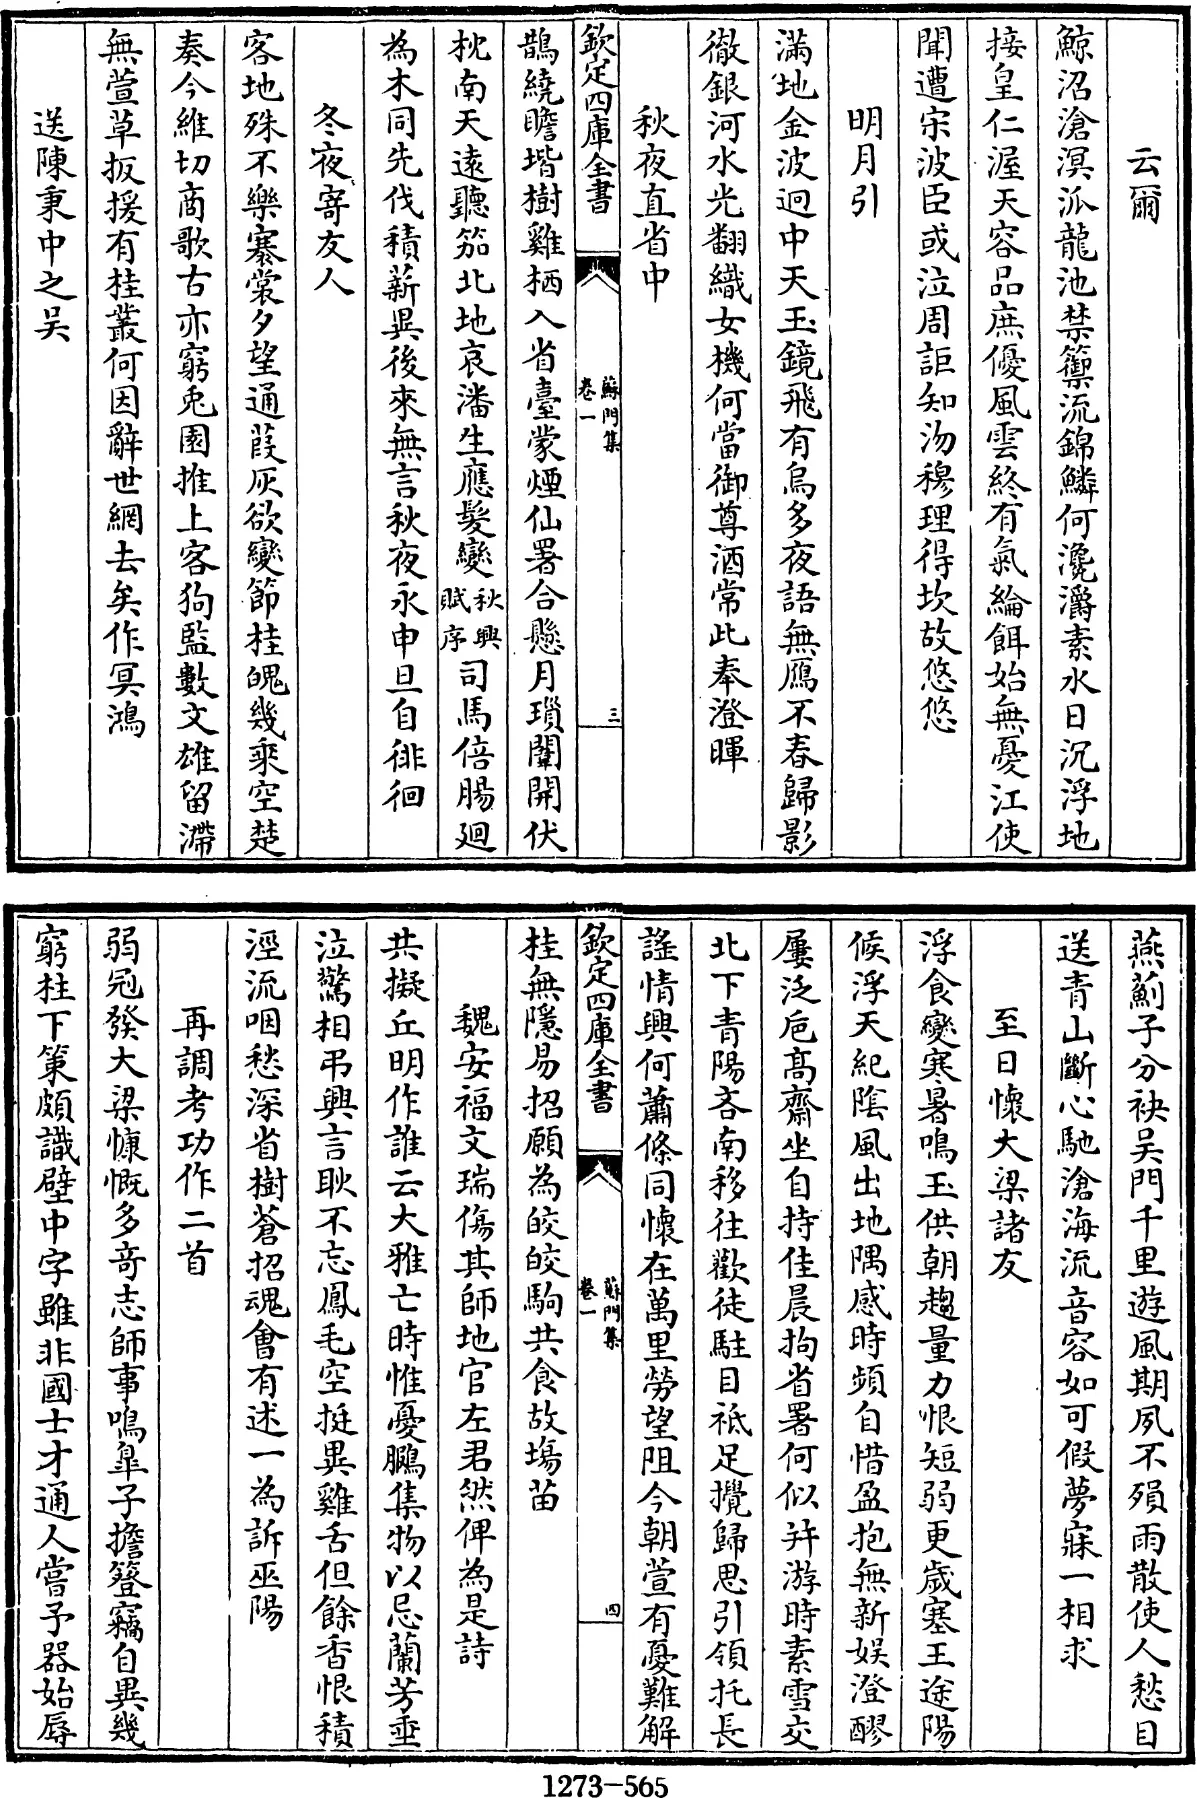 云爾
鯨沼滄溟派龍池禁籞流錦鱗何瀺灂素水日沉浮地
接皇仁渥天容品庶優風雲終有氣綸餌始無憂江使
聞遭宋波臣或泣周詎知沕穆理得坎故悠悠
明月引
滿地金波迥中天玉鏡飛有烏多夜語無鴈不春歸影
徹銀河水光翻織女機何當御尊酒常此奉澄暉
秋夜直省中
欽定四庫全書
蘇門集
卷一
三
鵲繞瞻堦樹雞栖入省臺蒙煙仙署合懸月瑣闈開伏
枕南天遠聽笳北地哀潘生應髮變秋興賦序司馬倍腸廻
為木同先伐積薪異後來無言秋夜永申旦自徘徊
冬夜寄友人
客地殊不樂褰裳夕望通葭灰欲變節桂魄幾乘空楚
奏今維切商歌古亦窮兎園推上客狗監數文雄留滯
無萱草扳援有桂叢何因辭世網去矣作冥鴻
送陳秉中之吳
燕薊子分袂吳門千里遊風期夙不殞雨散使人愁目
送青山斷心馳滄海流音容如可假夢寐一相求
至日懷大梁諸友
浮食變寒暑鳴玉供朝趨量力恨短弱更歲塞王途陽
候浮天紀陰風出地隅感時頻自惜盈抱無新娛澄醪
屢泛卮高齋坐自持佳晨拘省署何似并游時素雪交
北下青陽吝南移往歡徒駐目袛足攪歸思引領托長
謠情興何蕭條同懷在萬里勞望阻今朝萱有憂難解
欽定四庫全書
蘇門集
卷一
四
桂無隱易招願為皎皎駒共食故塲苗
魏安福文瑞傷其師地官左君然俾為是詩
共擬丘明作誰云大雅亡時惟憂鵩集物以忌蘭芳垂
泣驚相弔興言耿不忘鳳毛空挺異雞舌但餘香恨積
涇流咽愁深省樹蒼招魂會有述一為訴巫陽
再調考功作二首
弱冠發大梁慷慨多奇志師事鳴臯子擔簦竊自異幾
窮柱下策頗識壁中字雖非國士才通人嘗予器始辱
1273-565